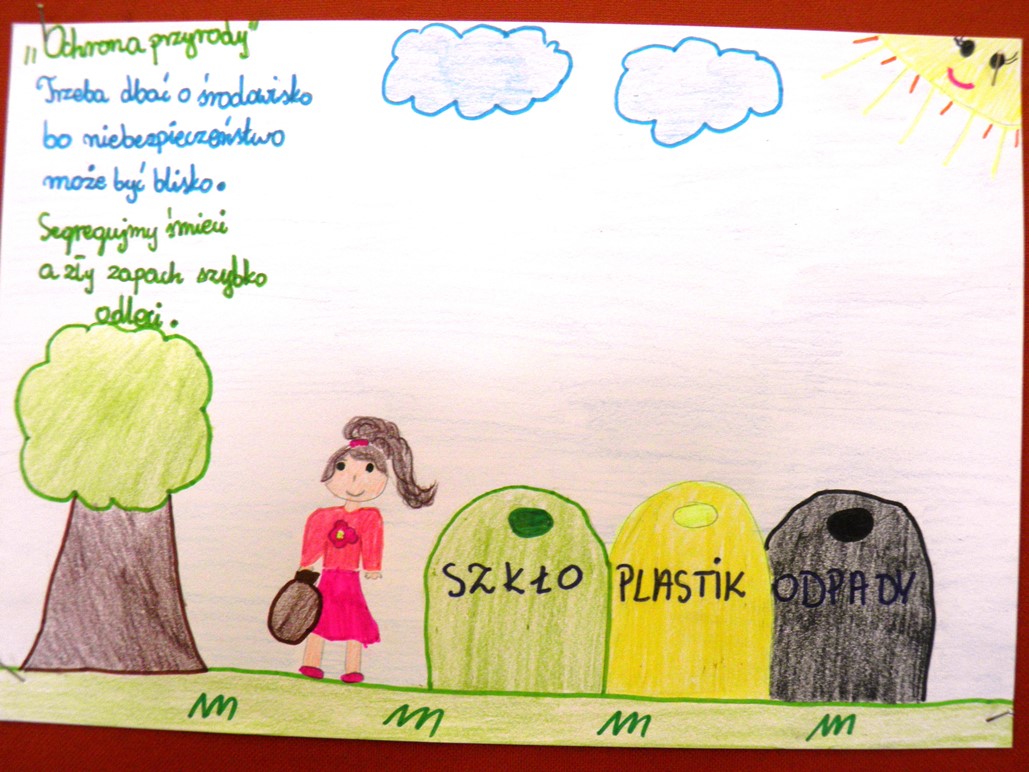 „Ochrona przyrody"
Trzeba dbać o środowisko
bo niebezpieczeństwo
może być blisko.
Segregujmy śmieci
a zły zapach szybko
odleci.
SZKŁO PLASTIK ODPADY